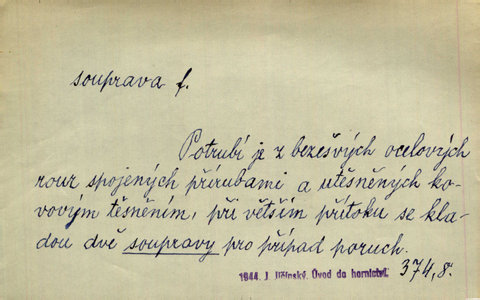 souprava f.
Potrubí je z bezešvých ocelových
rour spojených přírubami a utěsněných ko-
vovým těsněním, při větším přítoku se kla-
dou dvě soupravy pro případ poruch.
1944. J. Jičínský. Úvod do hornictví.
374,8.